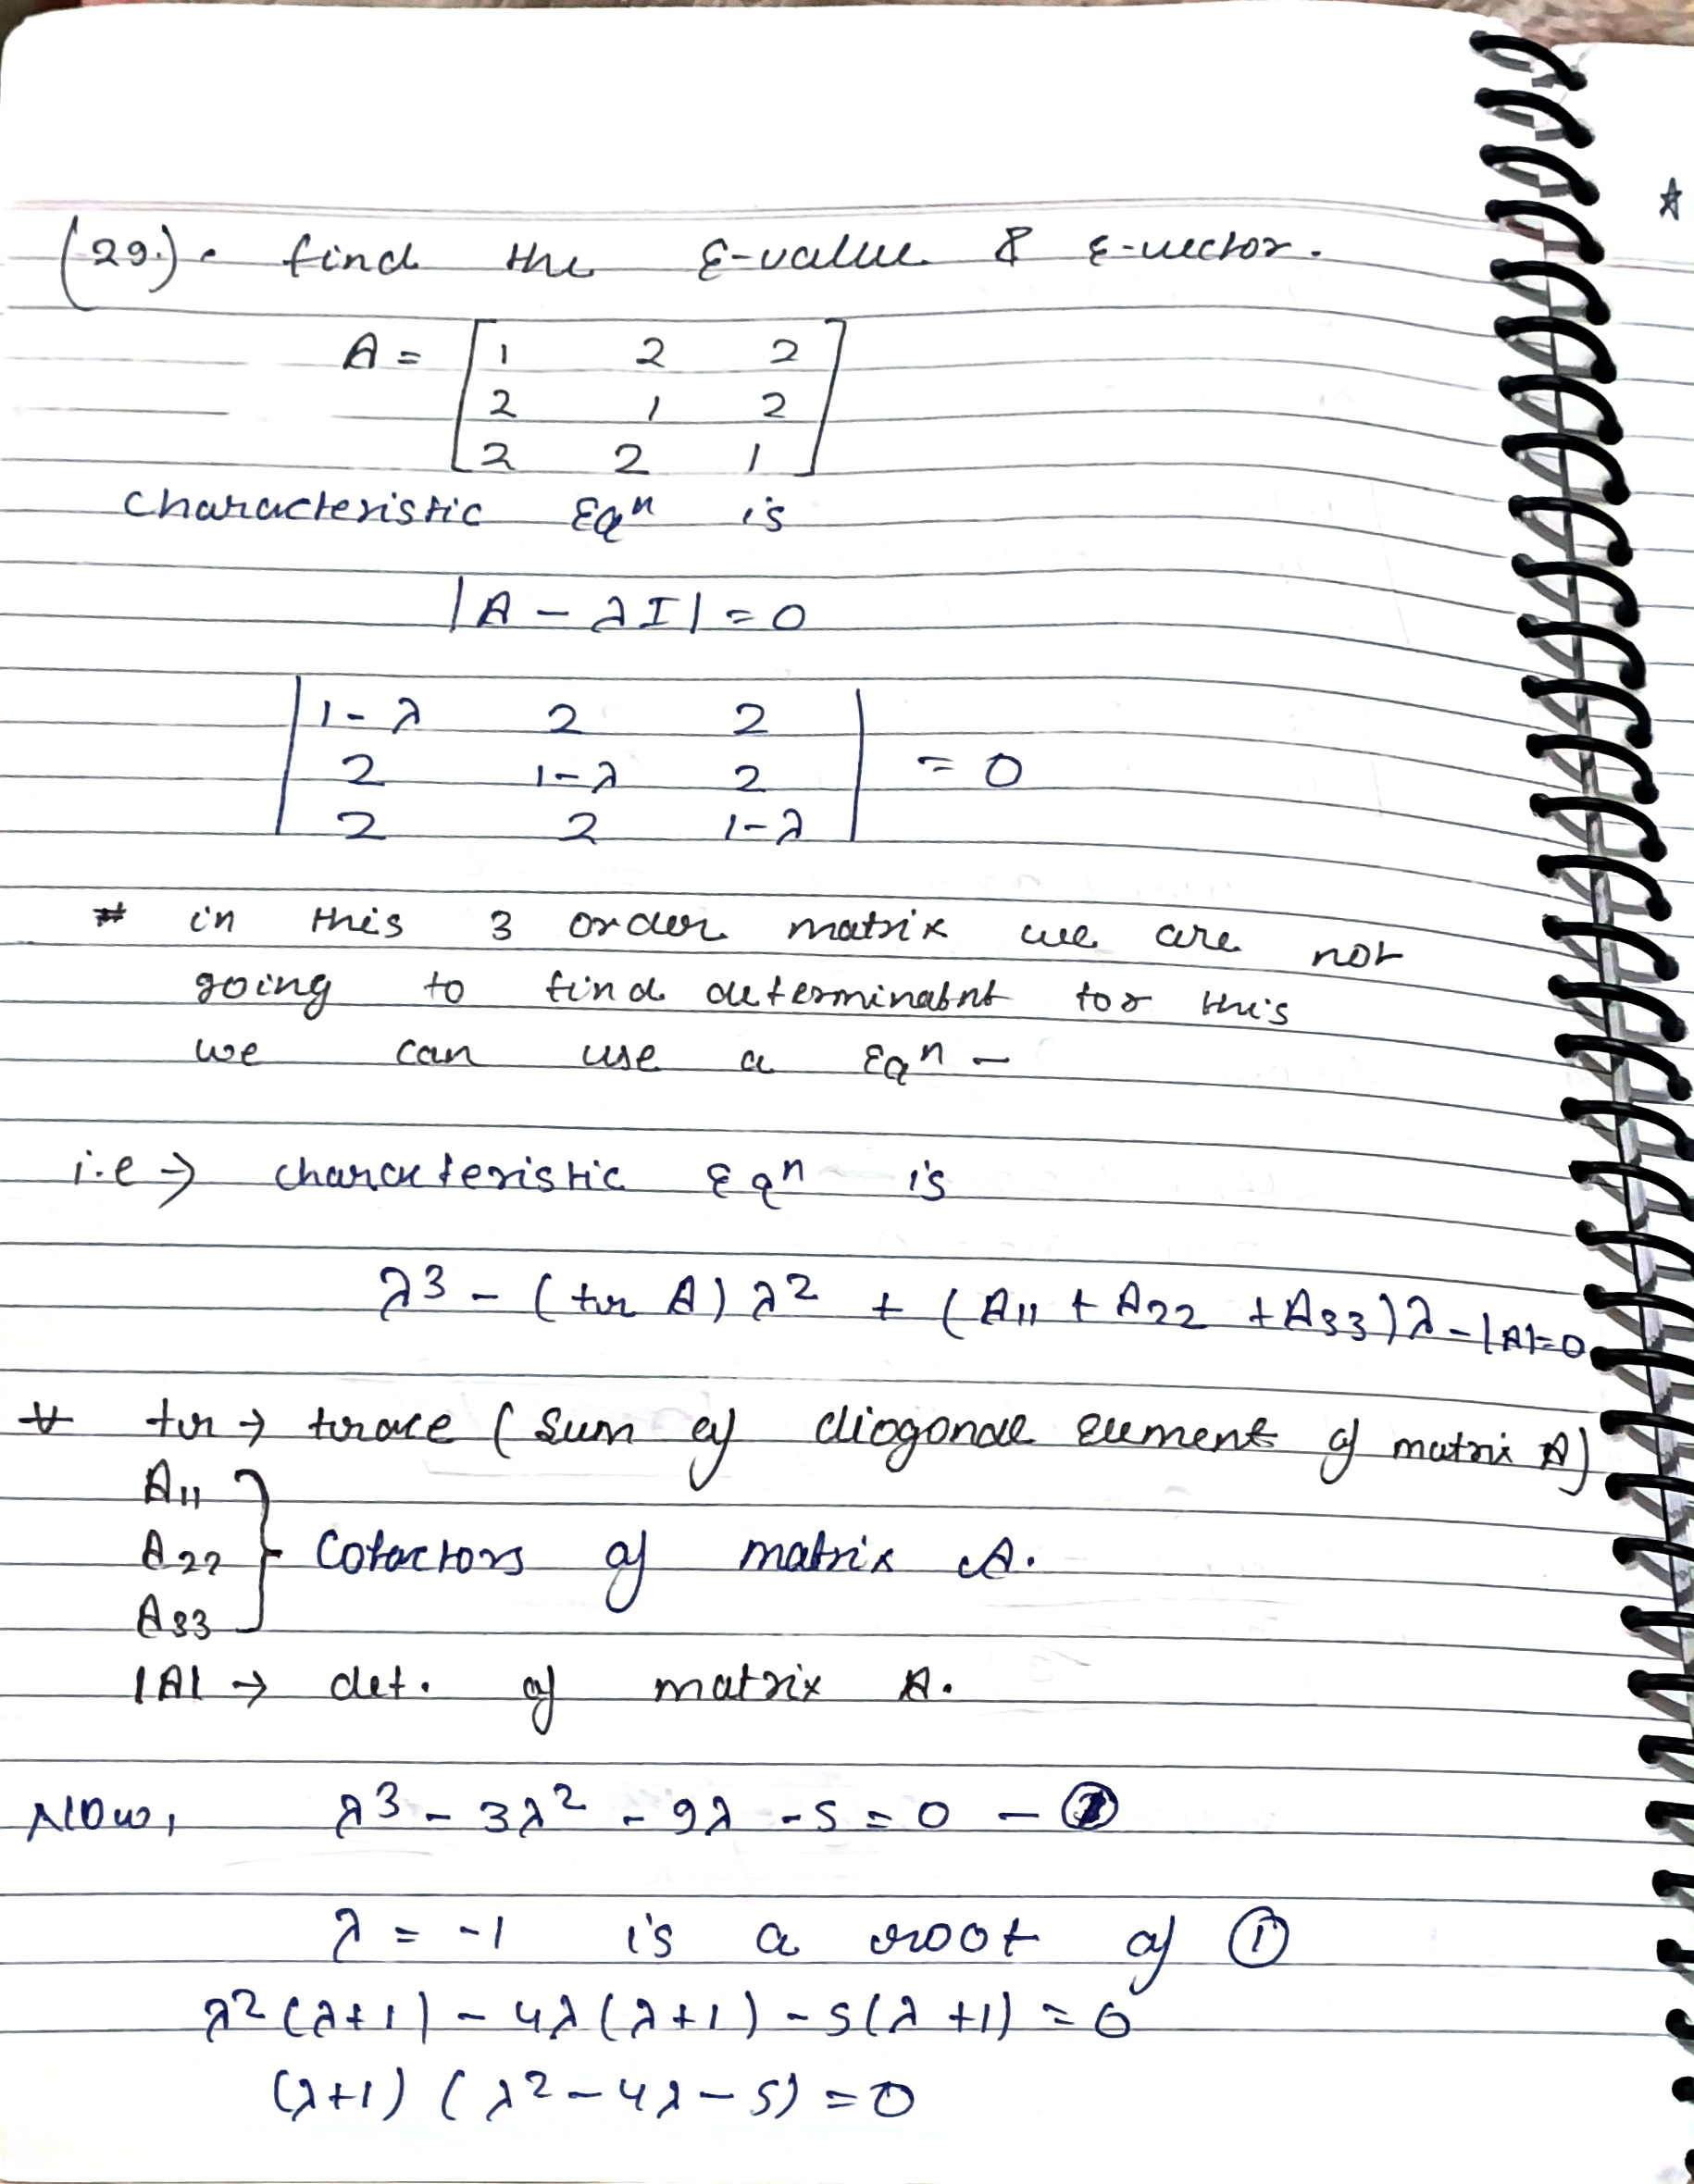 (29.) . find the ε-value & ε-vector.
A = [1 2 2
2 1 2
2 2 1]
characteristic Eqⁿ is
|A - λI| = 0
|1-λ 2 2|
|2 1-λ 2| = 0
|2 2 1-λ|
# in this 3 order matrix we are not
going to find determinatnt for this
we can use a Eqⁿ -
i.e → characteristic Eqⁿ is
λ³ - (tr A) λ² + (A₁₁ + A₂₂ + A₃₃) λ - |A| = 0
# tr → trace (sum of diogonal element of matrix A)
A₁₁
A₂₂ } Cofactors of matrix A.
A₃₃
|A| → det. of matrix A.
Now, λ³ - 3λ² - 9λ - 5 = 0 - ①
λ = -1 is a root of ①
λ²(λ+1) - 4λ(λ+1) - 5(λ+1) = 0
(λ+1) (λ² - 4λ - 5) = 0